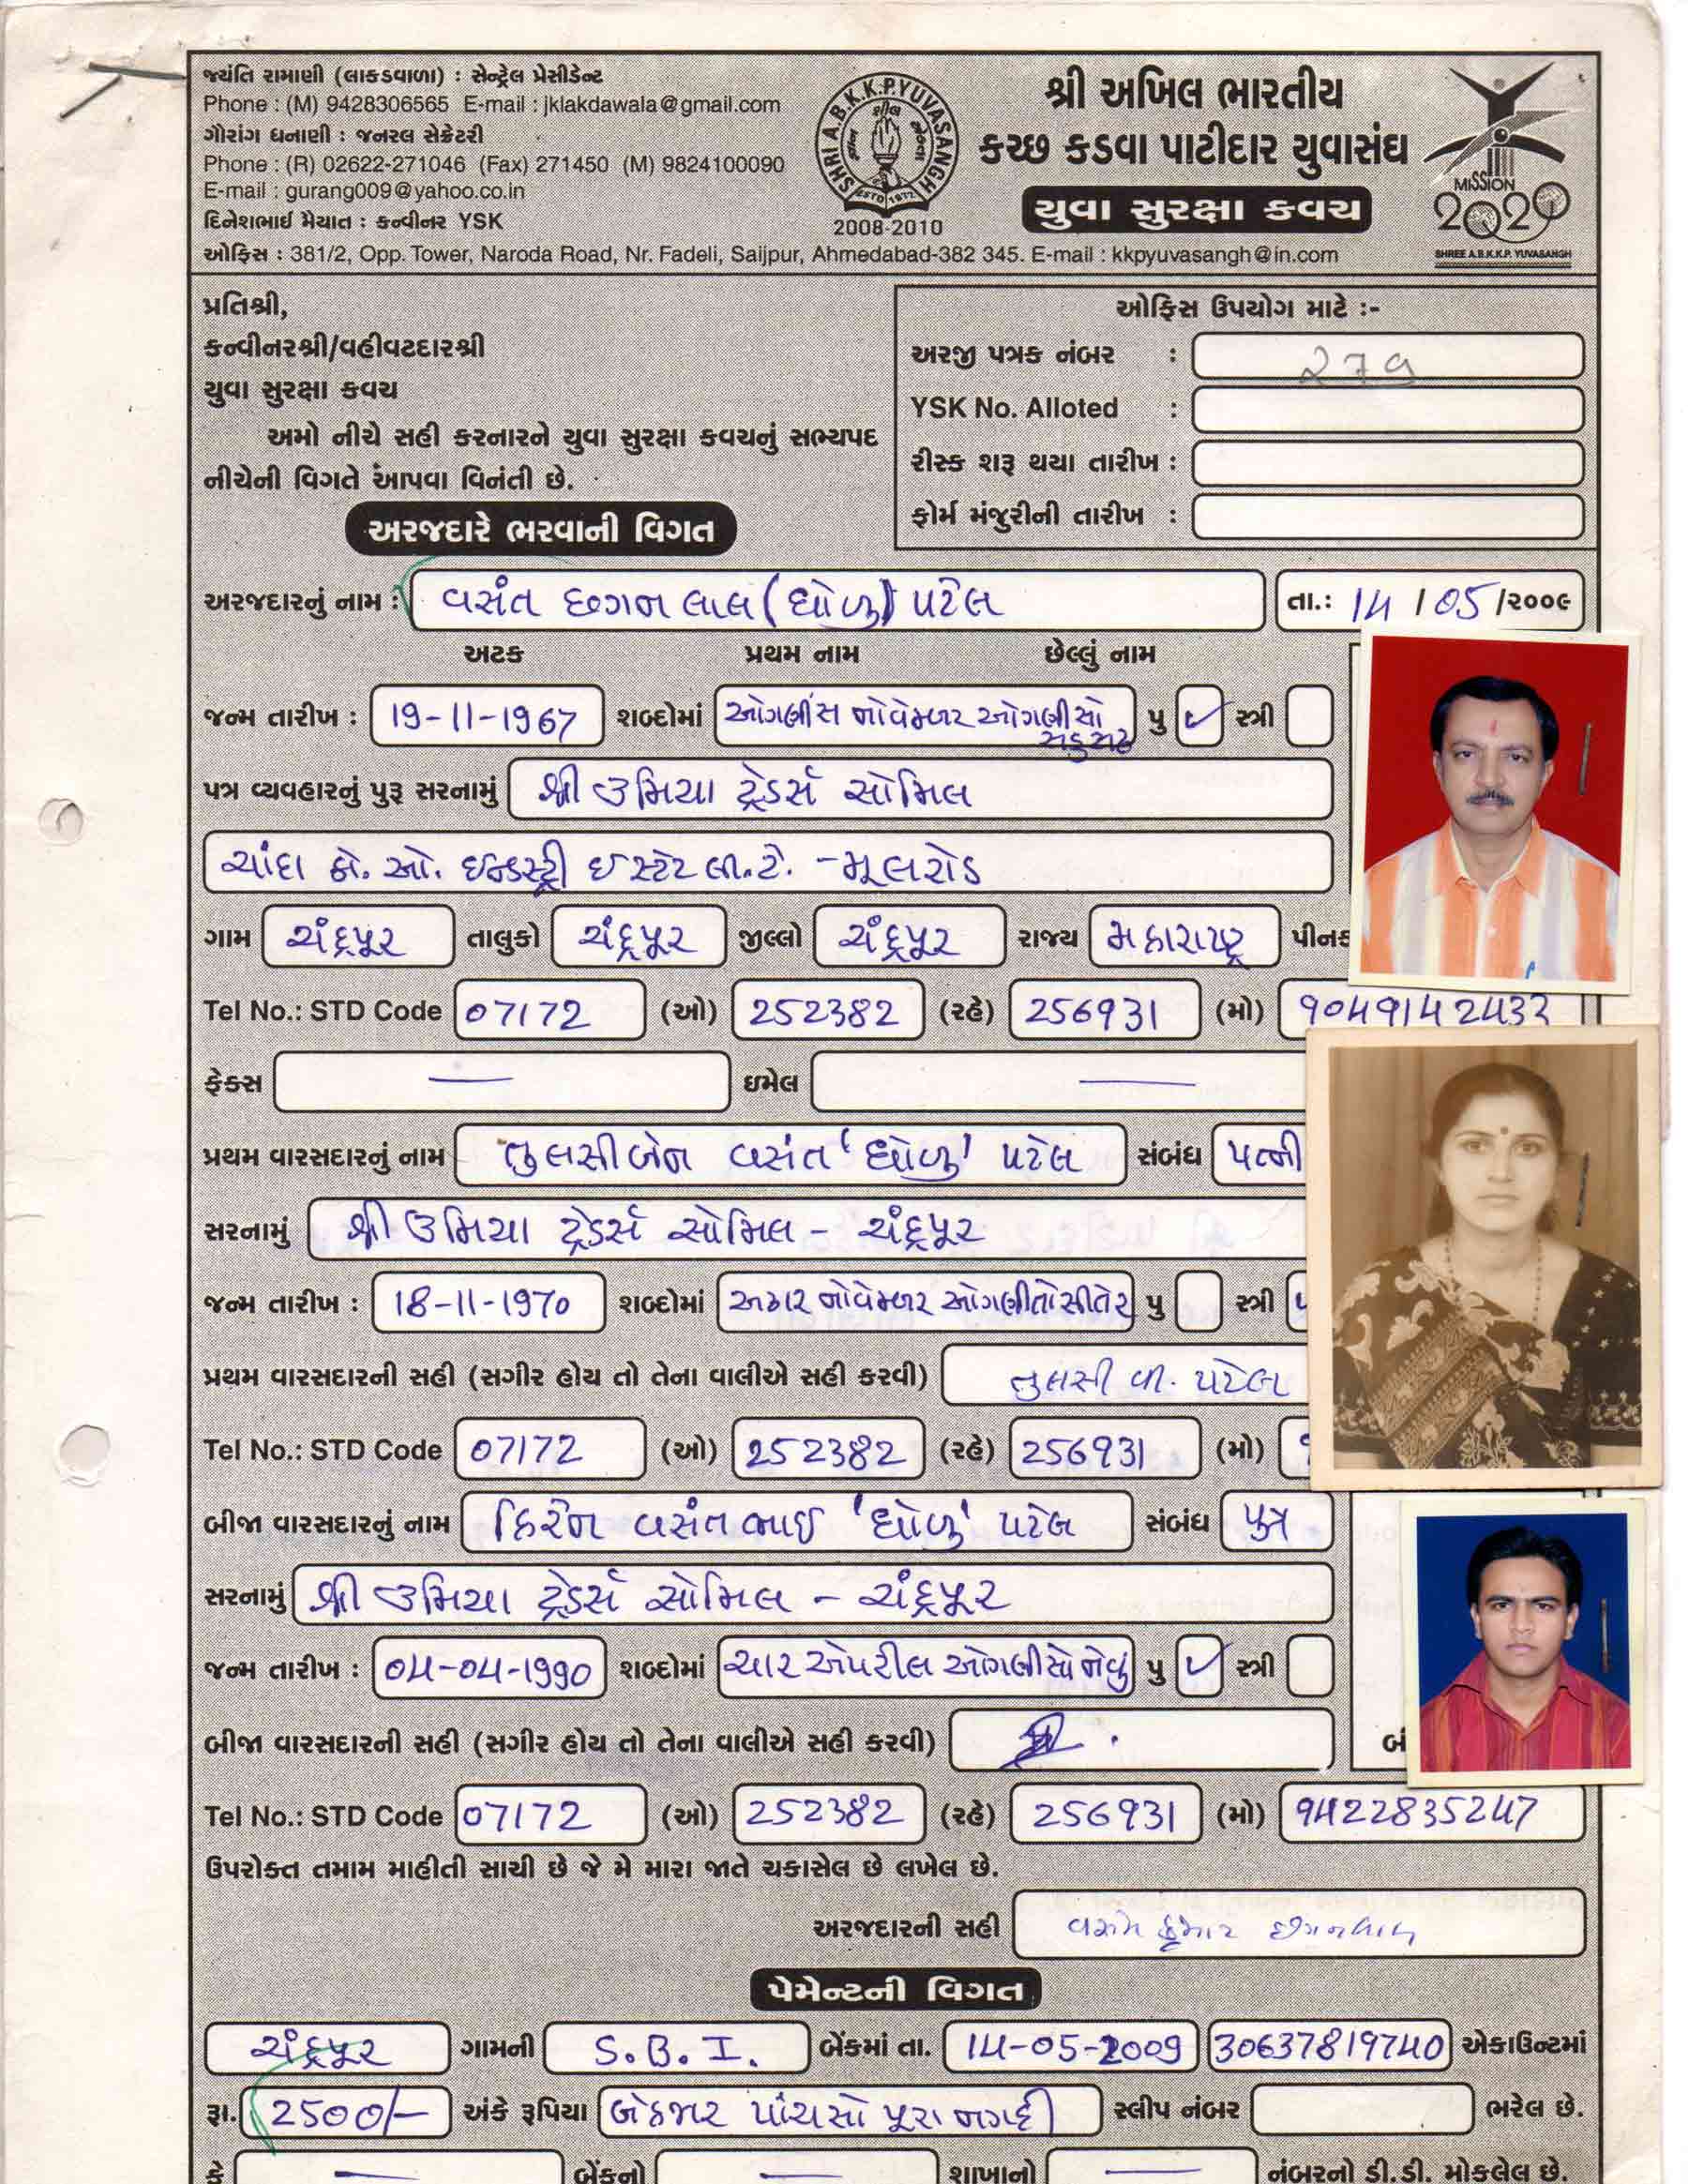 જયંતિ રામાણી (લાકડવાળા) : સેન્ટ્રેલ પ્રેસીડેન્ટ
Phone : (M) 9428306565 E-mail : jklakdawala@gmail.com
ગૌરાંગ ધનાણી : જનરલ સેક્રેટરી
Phone : (R) 02622-271046 (Fax) 271450 (M) 9824100090
E-mail : gurang009@yahoo.co.in
દિનેશભાઈ મૈયાત : કન્વીનર YSK
ઓફિસ : 381/2, Opp. Tower, Naroda Road, Nr. Fadeli, Saijpur, Ahmedabad-382 345. E-mail : kkpyuvasangh@in.com
SHRI A.B.K.K.P.YUVASANGH
ESTD 1977
2008-2010
શ્રી અખિલ ભારતીય
કચ્છ કડવા પાટીદાર યુવાસંઘ
યુવા સુરક્ષા કવચ
MISSION
2020
SHREE A.B.K.K.P. YUVASANGH
પ્રતિશ્રી,
કન્વીનરશ્રી/વહીવટદારશ્રી
યુવા સુરક્ષા કવચ
અમો નીચે સહી કરનારને યુવા સુરક્ષા કવચનું સભ્યપદ
નીચેની વિગતે આપવા વિનંતી છે.
ઓફિસ ઉપયોગ માટે :-
અરજી પત્રક નંબર :
YSK No. Alloted :
રીસ્ક શરૂ થયા તારીખ :
ફોર્મ મંજુરીની તારીખ :
અરજદારે ભરવાની વિગત
અરજદારનું નામ : વસંત છગનલાલ (ધોળુ) પટેલ તા.: 14 / 05 /૨૦૦૯
અટક પ્રથમ નામ છેલ્લું નામ
જન્મ તારીખ : 19-11-1967 શબ્દોમાં ઓગણીસ નોવેમ્બર ઓગણીસો સડસઠ પુ ✓ સ્ત્રી
પત્ર વ્યવહારનું પુરૂ સરનામું શ્રી ઉમિયા ટ્રેડર્સ સોમિલ
ચાંદા કો. ઓ. ઈન્ડસ્ટ્રી ઈસ્ટેટ લી.ટે. - મૂલરોડ
ગામ ચંદ્રપૂર તાલુકો ચંદ્રપૂર જીલ્લો ચંદ્રપૂર રાજ્ય મહારાષ્ટ્ર પીનક
Tel No.: STD Code 07172 (ઓ) 252382 (રહે) 256931 (મો) 9049142432
ફેક્સ — ઇમેલ —
પ્રથમ વારસદારનું નામ તુલસીબેન વસંત 'ધોળુ' પટેલ સંબંધ પત્ની
સરનામું શ્રી ઉમિયા ટ્રેડર્સ સોમિલ - ચંદ્રપૂર
જન્મ તારીખ : 18-11-1970 શબ્દોમાં અઢાર નોવેમ્બર ઓગણીસો સીતેર પુ સ્ત્રી
પ્રથમ વારસદારની સહી (સગીર હોય તો તેના વાલીએ સહી કરવી) તુલસી વી. પટેલ
Tel No.: STD Code 07172 (ઓ) 252382 (રહે) 256931 (મો)
બીજા વારસદારનું નામ હિરેન વસંતભાઈ 'ધોળુ' પટેલ સંબંધ પુત્ર
સરનામું શ્રી ઉમિયા ટ્રેડર્સ સોમિલ - ચંદ્રપૂર
જન્મ તારીખ : 04-04-1990 શબ્દોમાં ચાર એપરીલ ઓગણીસો નેવું પુ ✓ સ્ત્રી
બીજા વારસદારની સહી (સગીર હોય તો તેના વાલીએ સહી કરવી)
Tel No.: STD Code 07172 (ઓ) 252382 (રહે) 256931 (મો) 9422835247
ઉપરોક્ત તમામ માહીતી સાચી છે જે મે મારા જાતે ચકાસેલ છે લખેલ છે.
અરજદારની સહી વસંતકુમાર છગનલાલ
પેમેન્ટની વિગત
ચંદ્રપૂર ગામની S.B.I. બેંકમાં તા. 14-05-2009 30637819740 એકાઉન્ટમાં
રૂા. 2500/- અંકે રૂપિયા બેહજાર પાંચસો પૂરા નગદી સ્લીપ નંબર ભરેલ છે.
કે — બેંકનો — શાખાનો — નંબરનો ડી.ડી. મોકલેલ છે.